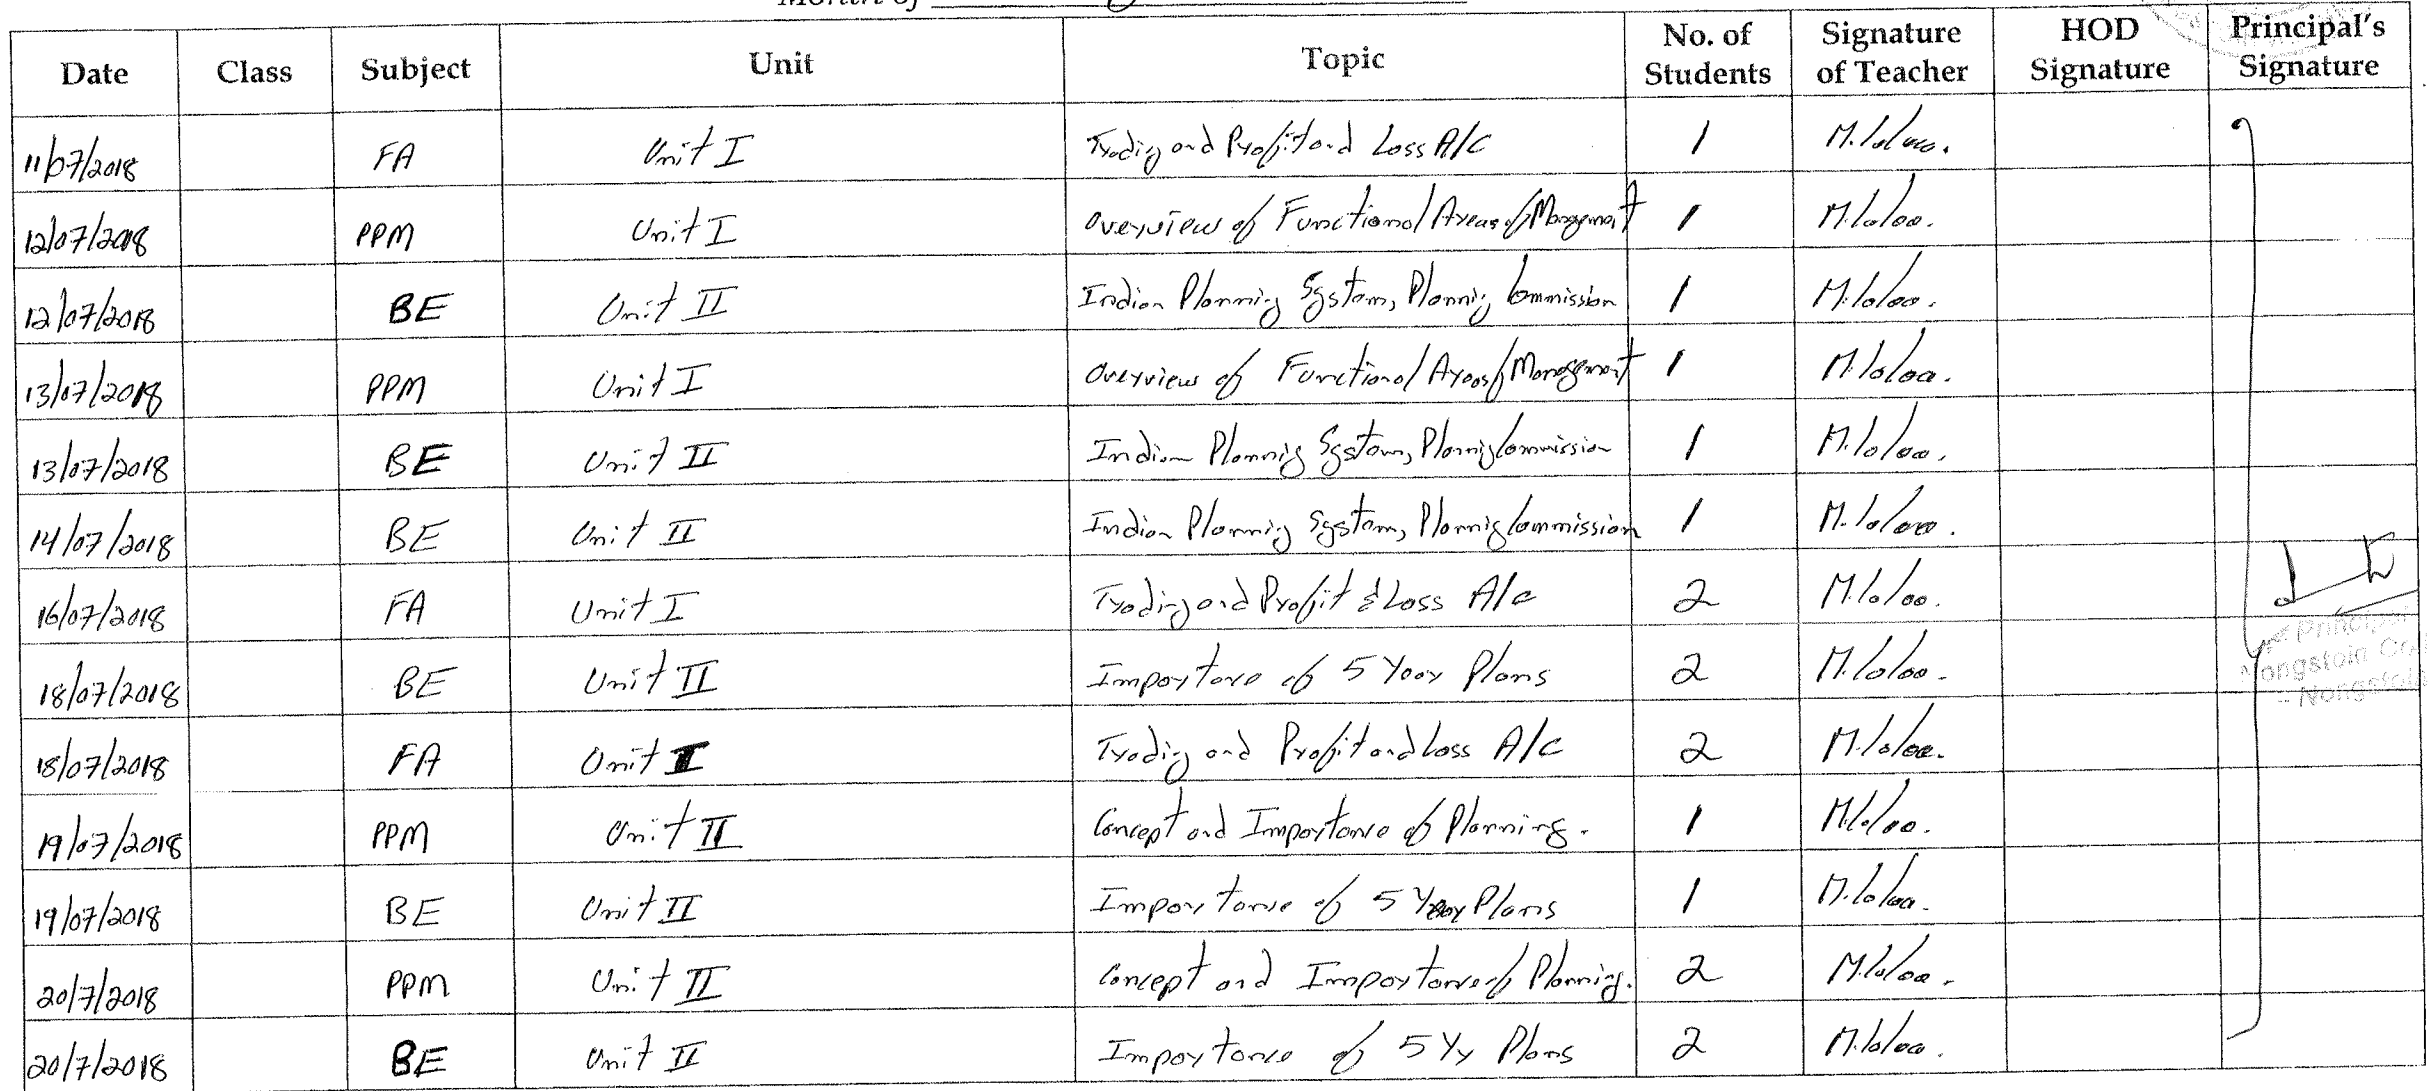 Month of
Date Class Subject Unit Topic No. of Students Signature of Teacher HOD Signature Principal's Signature
11/07/2018 FA Unit I Trading and Profit and Loss A/C 1
12/07/2018 PPM Unit I Overview of Functional Areas of Management 1
12/07/2018 BE Unit II Indian Planning System, Planning Commission 1
13/07/2018 PPM Unit I Overview of Functional Areas of Management 1
13/07/2018 BE Unit II Indian Planning System, Planning Commission 1
14/07/2018 BE Unit II Indian Planning System, Planning Commission 1
16/07/2018 FA Unit I Trading and Profit & Loss A/c 2
18/07/2018 BE Unit II Importance of 5 Year Plans 2
18/07/2018 FA Unit I Trading and Profit and Loss A/C 2
19/07/2018 PPM Unit II Concept and Importance of Planning. 1
19/07/2018 BE Unit II Importance of 5 Year Plans 1
20/7/2018 PPM Unit II Concept and Importance of Planning. 2
20/7/2018 BE Unit II Importance of 5 Yr Plans 2
Principal
Nongstoin
Nongstoin